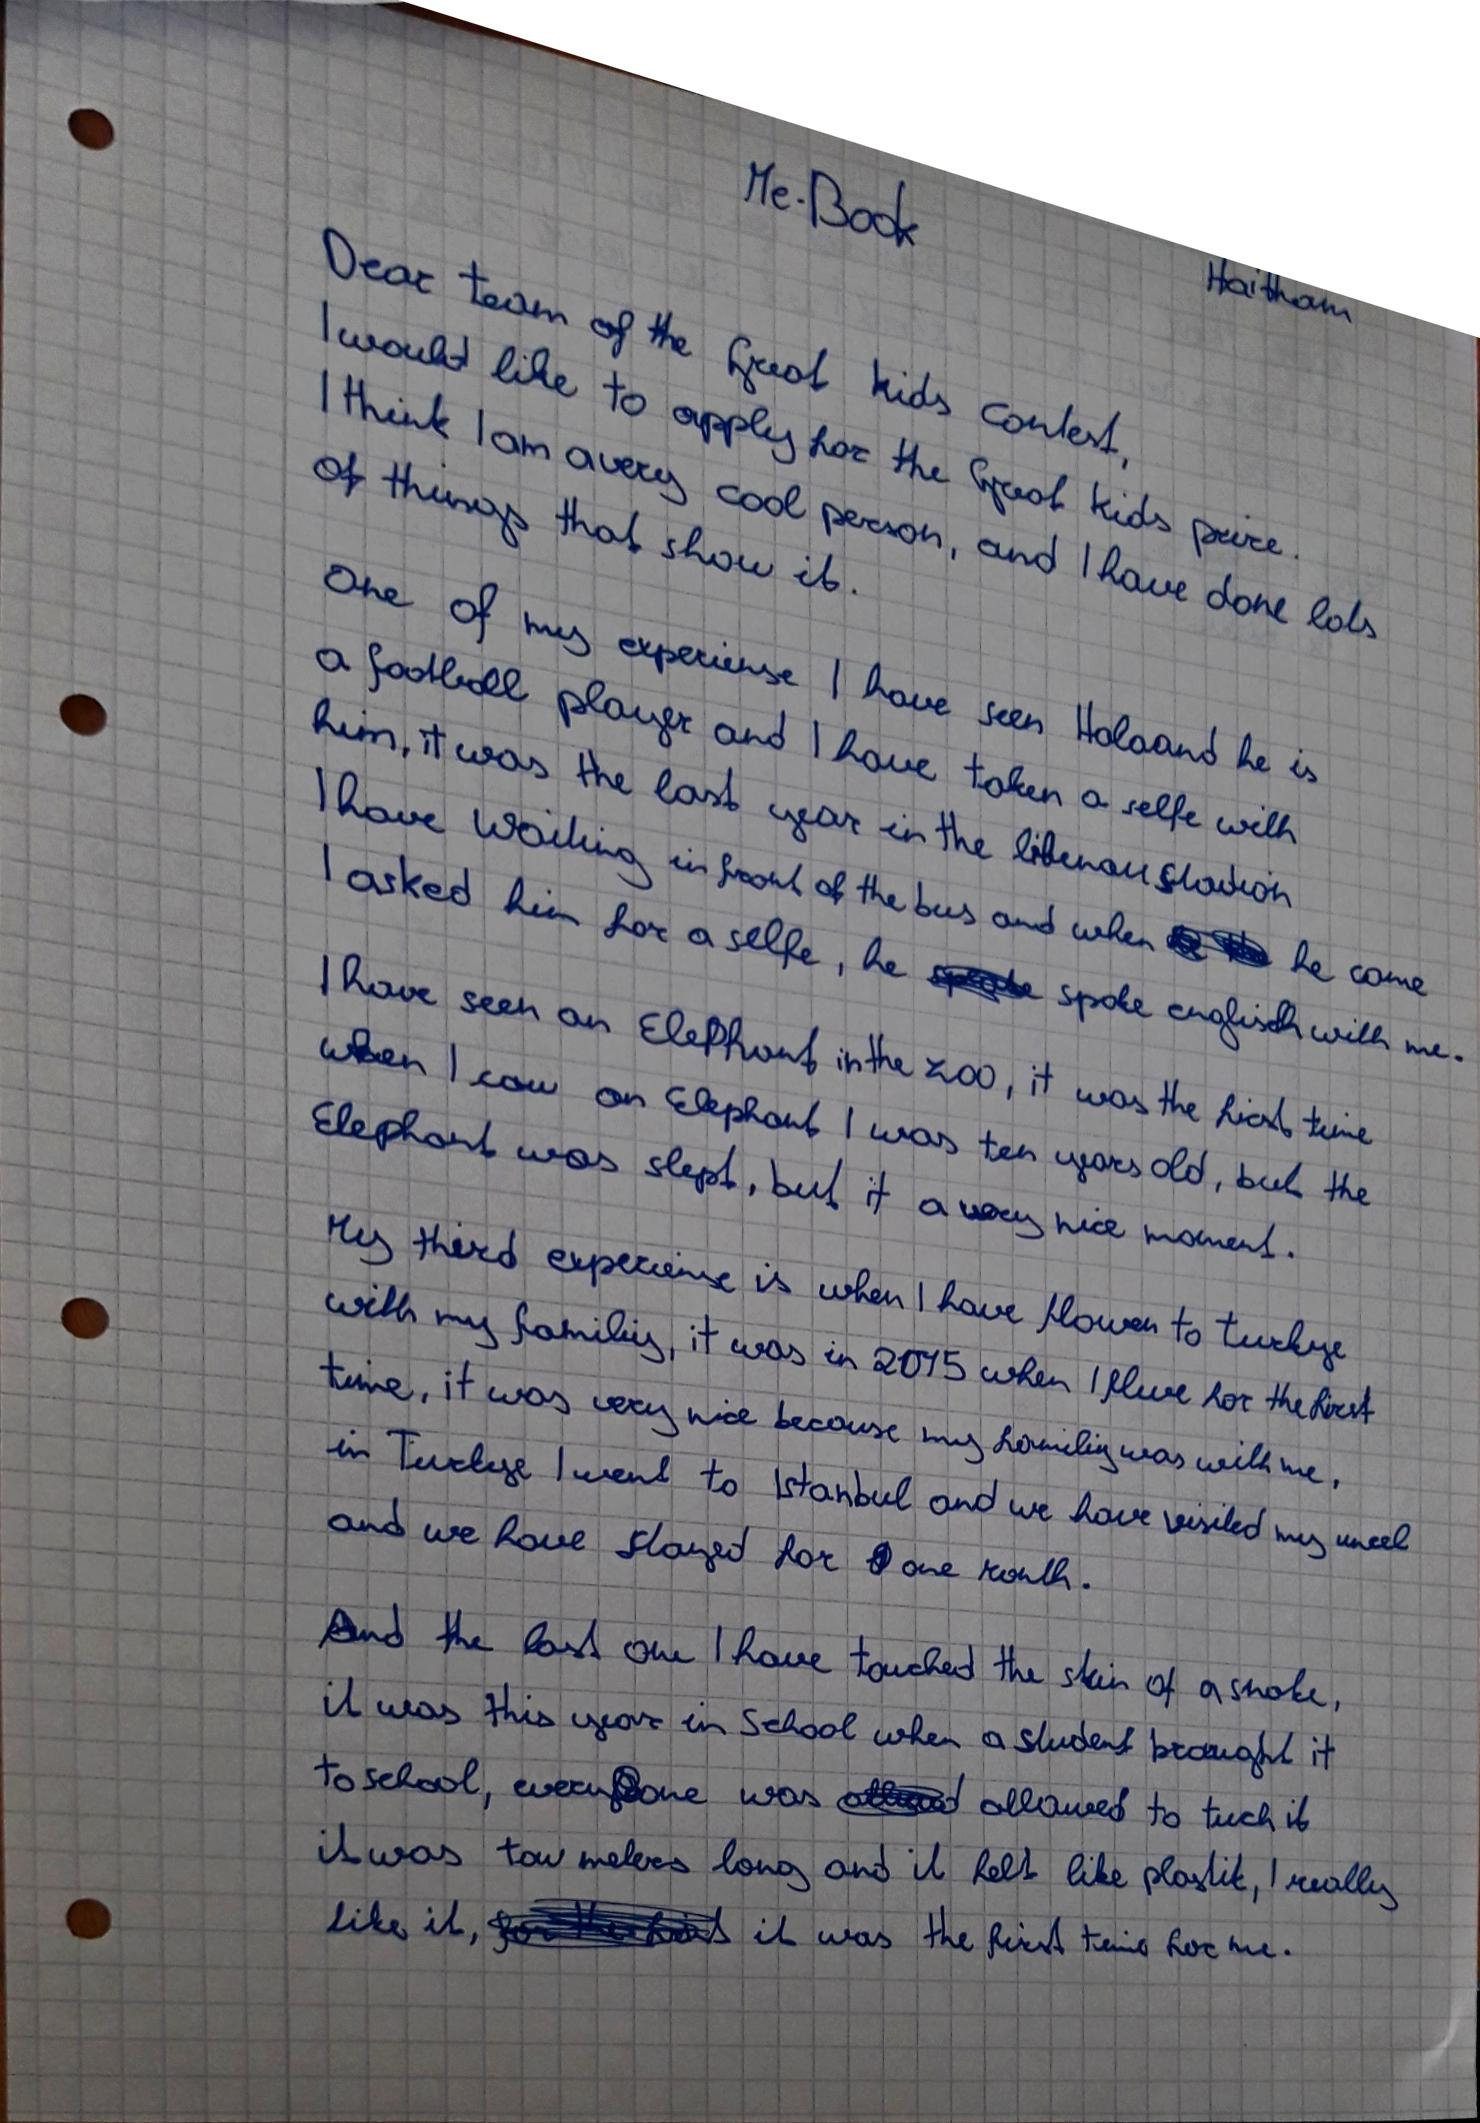 Me-Book
Haitham
Dear team of the Great kids contest,
I would like to apply for the Great kids price.
I think I am a very cool person, and I have done lots
of things that show it.
One of my experiense I have seen Holaand he is
a football player and I have taken a selfe with
him, it was the last year in the libenau stadion
I have waiting in front of the bus and when he come
I asked him for a selfe, he spoke englisch with me.
I have seen an Elephant in the zoo, it was the first time
when I saw an Elephant I was ten years old, but the
Elephant was slept, but it a very nice moment.
My third experiense is when I have flowen to turkye
with my familiy, it was in 2015 when I fluve for the first
time, it was very nice because my familiy was with me,
in Turkye I went to Istanbul and we have visited my uncel
and we have stayed for one month.
And the last one I have touched the skin of a snake,
it was this year in School when a student brought it
to school, everyone was allowed to tuch it
it was tow meters long and it felt like plastik, I really
like it, it was the first time for me.